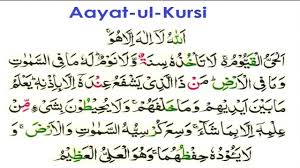 Aayat-ul-Kursi
اَللّٰهُ لَاۤ اِلٰهَ اِلَّا هُوَۚ
اَلْحَیُّ الْقَیُّوْمُ ۚ لَا تَاْخُذُهٗ سِنَةٌ وَّلَا نَوْمٌ ؕ لَهٗ مَا فِی السَّمٰوٰتِ
وَمَا فِی الْاَرْضِ ؕ مَنْ ذَا الَّذِیْ یَشْفَعُ عِنْدَهٗۤ اِلَّا بِاِذْنِهٖ ؕ یَعْلَمُ
مَا بَیْنَ اَیْدِیْهِمْ وَمَا خَلْفَهُمْ ۚ وَلَا یُحِیْطُوْنَ بِشَیْءٍ مِّنْ
عِلْمِهٖۤ اِلَّا بِمَا شَآءَ ۚ وَسِعَ كُرْسِیُّهُ السَّمٰوٰتِ وَالْاَرْضَ ۚ وَ
لَا یَـُٔوْدُهٗ حِفْظُهُمَا ۚ وَهُوَ الْعَلِیُّ الْعَظِیْمُ